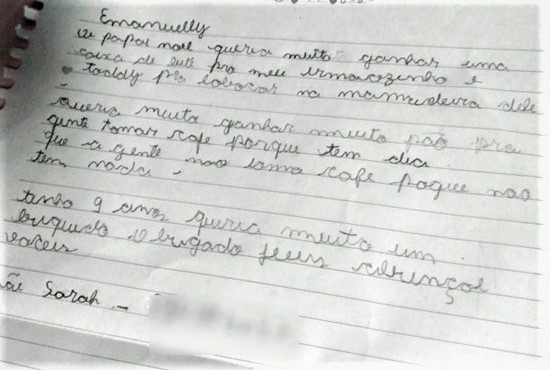 Emanuelly
papai noel queria muito ganhar uma
caixa de leite pro meu irmaozinho e
toddy pra colocar na mamadeira dele
queria muito ganhar muito pao pra
gente tomar cafe porque tem dia
que a gente nao toma cafe poque nao
tem nada.
tenho 9 anos queria muito um
briquedo obrigado
Sarah -